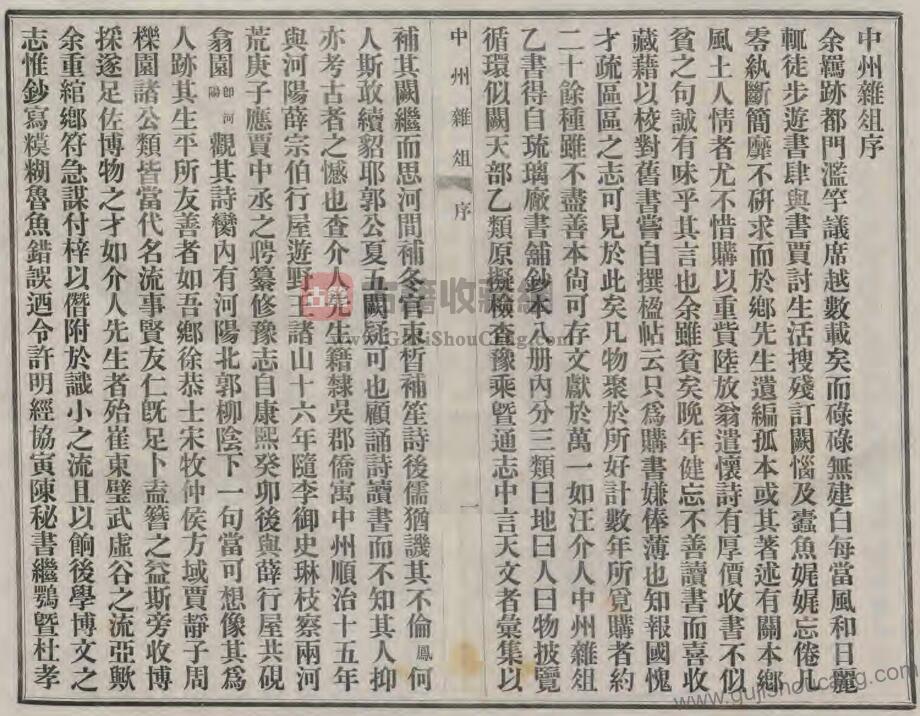 中州雜俎序
余羈跡都門濫竽議席越數載矣而碌碌無建白每當風和日麗
輒徒步遊書肆與書賈討生活搜殘訂闕惱及蠹魚娓娓忘倦凡
零紈斷簡靡不研求而於鄉先生遺編孤本或其著述有關本鄉
風土人情者尤不惜購以重貲陸放翁遣懷詩有厚價收書不似
貧之句誠有味乎其言也余雖貧矣晚年健忘不善讀書而喜收
藏藉以校對舊書嘗自撰楹帖云只爲購書嫌俸薄也知報國愧
才疏區區之志可見於此矣凡物聚於所好計數年所覓購者約
二十餘種雖不盡善本尙可存文獻於萬一如汪介人中州雜俎
乙書得自琉璃廠書舖鈔本八册內分三類曰地曰人曰物披覽
循環似闕天部乙類原擬檢查豫乘曁通志中言天文者彙集以
中州雜俎 序 一
補其闕繼而思河間補冬官束晳補笙詩後儒猶譏其不倫鳳何
人斯敢續貂耶郭公夏五闕疑可也顧誦詩讀書而不知其人抑
亦考古者之憾也查介人先生籍隸吳郡僑寓中州順治十五年
與河陽薛宗伯行屋遊野王諸山十六年隨李御史琳枝察兩河
荒庚子應賈中丞之聘纂修豫志自康熙癸卯後與薛行屋共硯
翕園卽河陽觀其詩欒內有河陽北郭柳陰下一句當可想像其爲
人跡其生平所友善者如吾鄉徐恭士宋牧仲侯方域賈靜子周
櫟園諸公類皆當代名流事賢友仁旣足卜盍簪之益斯旁收博
採遂足佐博物之才如介人先生者殆崔東壁武虛谷之流亞歟
余重綰鄉符急謀付梓以僭附於識小之流且以餉後學博文之
志惟鈔寫糢糊魯魚錯誤迺令許明經協寅陳秘書繼鶚曁杜孝
古籍收藏網
www.GuJiShouCang.com
www.gujishoucang.com